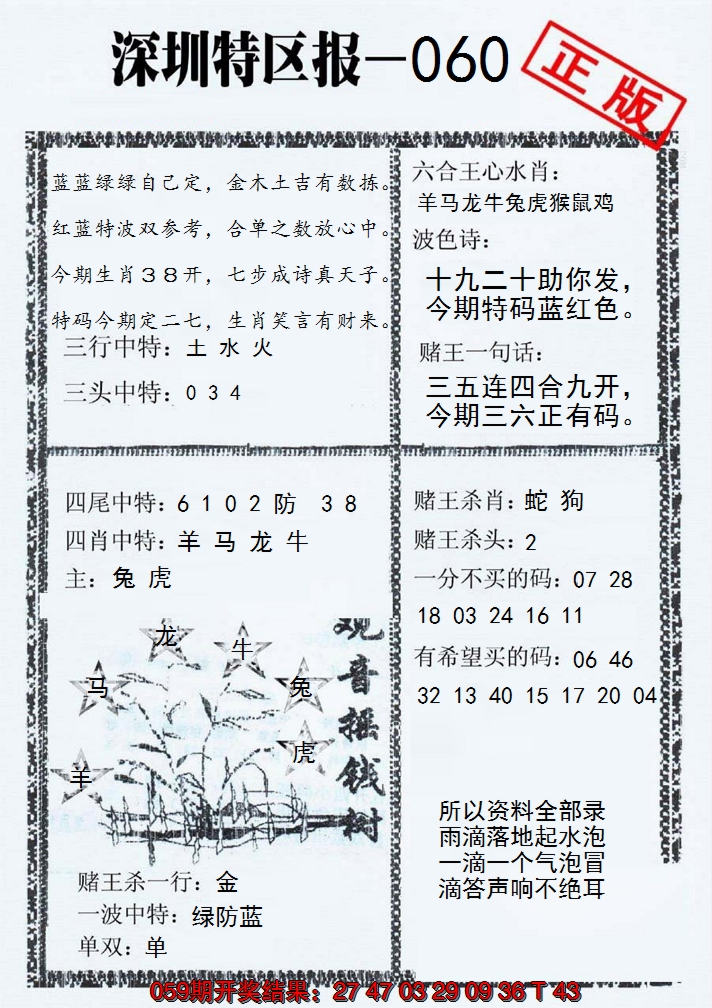 深圳特区报—060
正版
蓝蓝绿绿自己定，金木土吉有数拣。
红蓝特波双参考，合单之数放心中。
今期生肖３８开，七步成诗真天子。
特码今期定二七，生肖笑言有财来。
三行中特：土 水 火
三头中特：0 3 4
六合王心水肖：
羊马龙牛兔虎猴鼠鸡
波色诗：
十九二十助你发，
今期特码蓝红色。
赌王一句话：
三五连四合九开，
今期三六正有码。
四尾中特：6 1 0 2 防 3 8
四肖中特：羊 马 龙 牛
主：兔 虎
龙
牛
马
兔
虎
羊
观音摇钱树
赌王杀一行：金
一波中特：绿防蓝
单双：单
赌王杀肖：蛇 狗
赌王杀头：2
一分不买的码：07 28
18 03 24 16 11
有希望买的码：06 46
32 13 40 15 17 20 04
所以资料全部录
雨滴落地起水泡
一滴一个气泡冒
滴答声响不绝耳
059期开奖结果：27 47 03 29 09 36 T 43